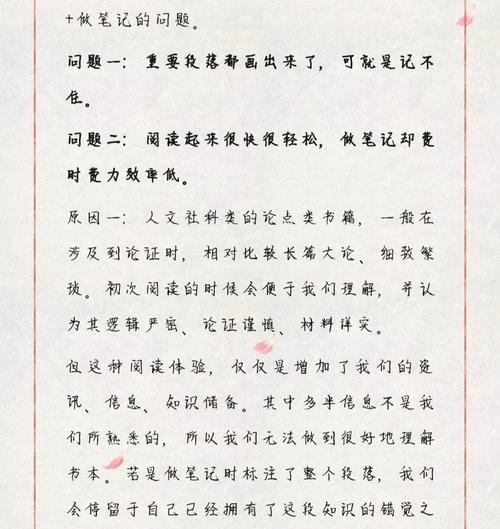 +做笔记的问题。
问题一：重要段落都画出来了，可就是记不
住。
问题二：阅读起来很快很轻松，做笔记却费
时费力效率低。
原因一：人文社科类的论点类书籍，一般在
涉及到论证时，相对比较长篇大论、细致繁
琐。初次阅读的时候会便于我们理解，并认
为其逻辑严密、论证谨慎、材料详实。
但这种阅读体验，仅仅是增加了我们的资
讯、信息、知识储备。其中多半信息不是我
们所熟悉的，所以我们无法做到很好地理解
书本。若是做笔记时标注了整个段落，我们
会停留于自己已经拥有了这段知识的错觉之